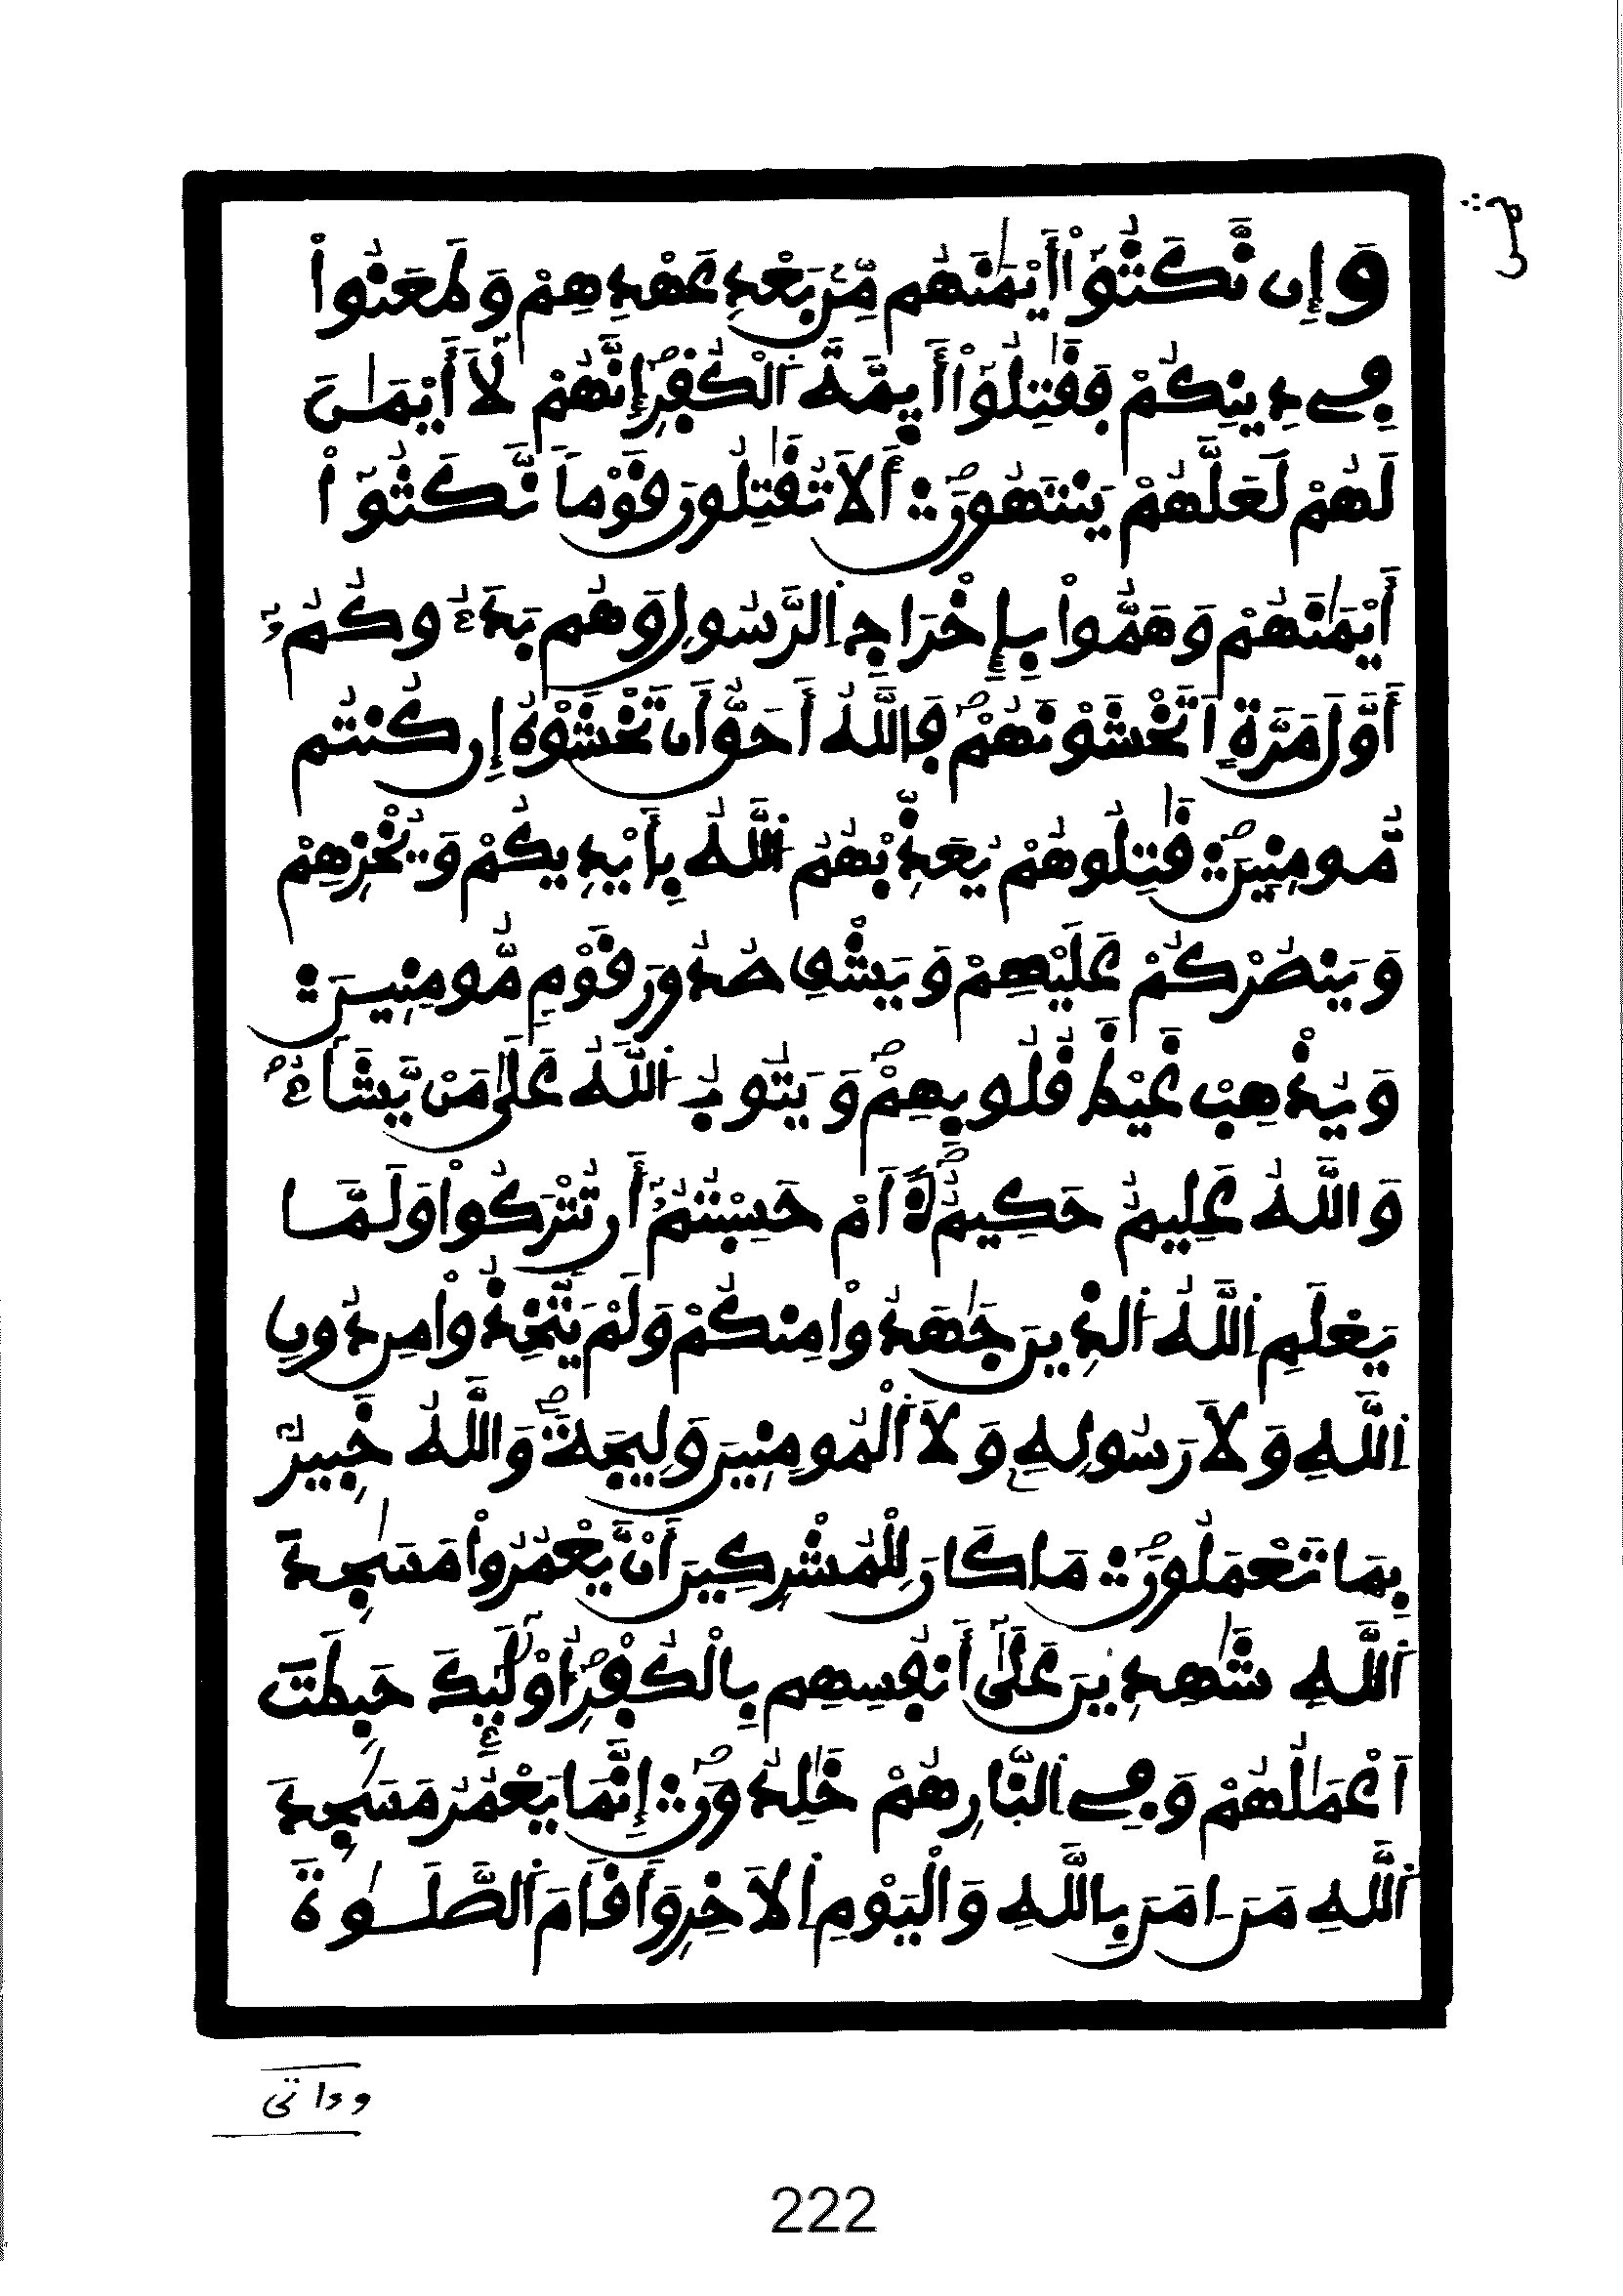 ثمن
وَإِن نَّكَثُوٓاْ أَيْمَٰنَهُم مِّنۢ بَعْدِ عَهْدِهِمْ وَطَعَنُواْ
فِے دِينِكُمْ فَقَٰتِلُوٓاْ أَيِمَّةَ اَ۬لْكُفْرِ إِنَّهُمْ لَآ أَيْمَٰنَ
لَهُمْ لَعَلَّهُمْ يَنتَهُونَۖ أَلَا تُقَٰتِلُونَ قَوْماٗ نَّكَثُوٓاْ
أَيْمَٰنَهُمْ وَهَمُّواْ بِإِخْرَاجِ اِ۬لرَّسُولِ وَهُم بَدَءُوكُمُۥٓ
أَوَّلَ مَرَّةٍ اَتَخْشَوْنَهُمْۖ فَاللَّهُ أَحَقُّ أَن تَخْشَوْهُ إِن كُنتُم
مُّومِنِينَۖ قَٰتِلُوهُمْ يُعَذِّبْهُمُ اُ۬للَّهُ بِأَيْدِيكُمْ وَيُخْزِهِمْ
وَيَنصُرْكُمْ عَلَيْهِمْ وَيَشْفِ صُدُورَ قَوْمٖ مُّومِنِينَ
وَيُذْهِبْ غَيْظَ قُلُوبِهِمْۖ وَيَتُوبُ اُ۬للَّهُ عَلَىٰ مَنْ يَّشَآءُۖ
وَاللَّهُ عَلِيمٌ حَكِيمٌۖ ۝ اَمْ حَسِبْتُمُۥٓ أَن تُتْرَكُواْ وَلَمَّا
يَعْلَمِ اِ۬للَّهُ اُ۬لذِينَ جَٰهَدُواْ مِنكُمْ وَلَمْ يَتَّخِذُواْ مِن دُونِ
اِ۬للَّهِ وَلَا رَسُولِهِۦ وَلَا اَ۬لْمُومِنِينَ وَلِيجَةٗۖ وَاللَّهُ خَبِيرُۢ
بِمَا تَعْمَلُونَۖ مَا كَانَ لِلْمُشْرِكِينَ أَنْ يَّعْمُرُواْ مَسَٰجِدَ
اَ۬للَّهِ شَٰهِدِينَ عَلَىٰٓ أَنفُسِهِم بِالْكُفْرِۖ أُوْلَٰٓئِكَ حَبِطَتَ
اَعْمَٰلُهُمْ وَفِے اِ۬لنَّارِ هُمْ خَٰلِدُونَۖ إِنَّمَا يَعْمُرُ مَسَٰجِدَ
اَ۬للَّهِ مَنَ اٰمَنَ بِاللَّهِ وَالْيَوْمِ اِ۬لَاخِرِ وَأَقَامَ اَ۬لصَّلَوٰةَ
وءاتى
222